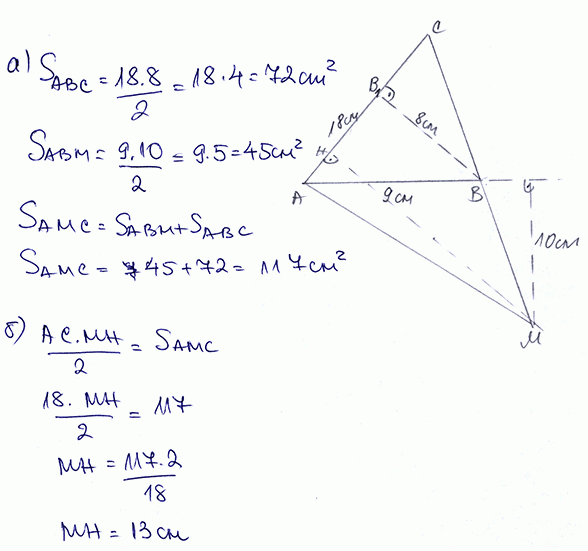 а) S_ABC = 18.8/2 = 18.4 = 72 cm²
S_ABM = 9.10/2 = 9.5 = 45 cm²
S_AMC = S_ABM + S_ABC
S_AMC = 45 + 72 = 117 cm²
б) AC.MH/2 = S_AMC
18.MH/2 = 117
MH = 117.2/18
MH = 13 см
C
B₁
18см
8см
H
A
9см
B
10см
M